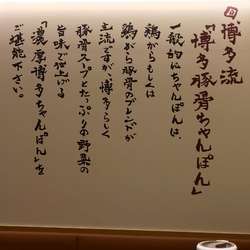 博多流
「博多豚骨ちゃんぽん」
一般的にちゃんぽんは、
鶏がらもしくは
鶏がら豚骨のブレンドが
主流ですが、博多らしく
豚骨スープとたっぷりの野菜の
旨味で仕上げる
「濃厚博多ちゃんぽん」を
ご堪能下さい。